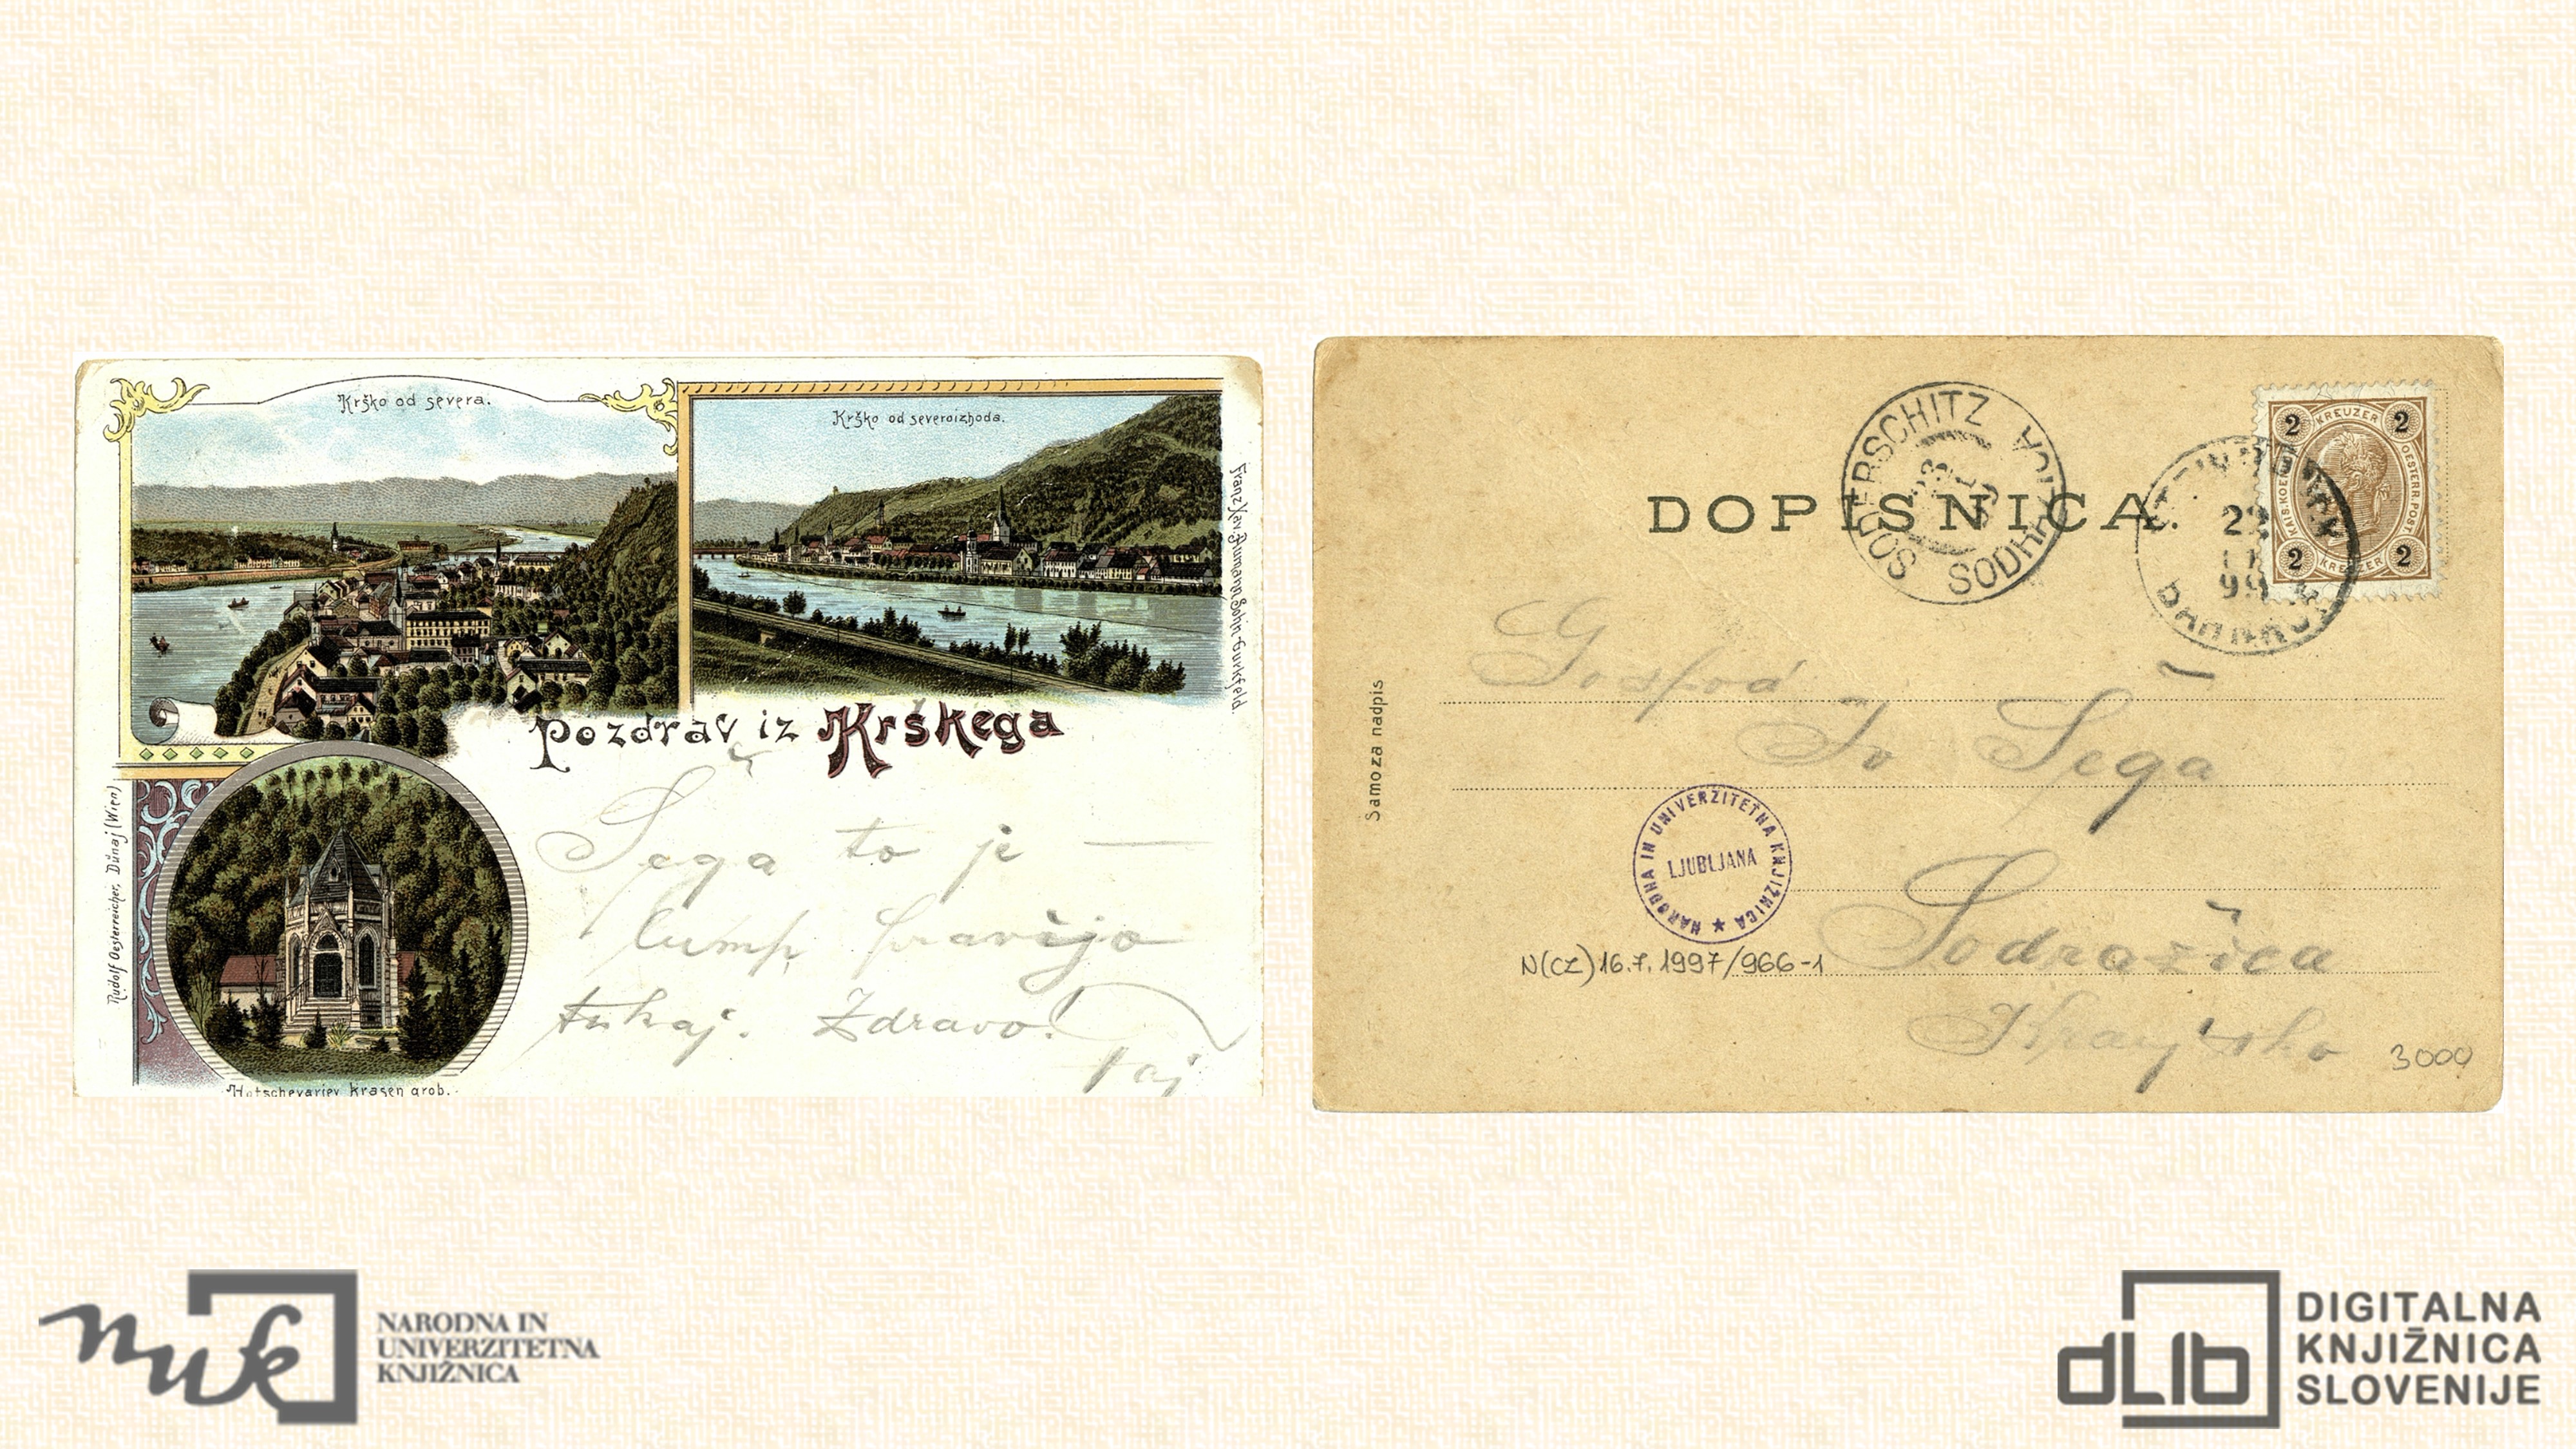 Krško od severa.
Krško od severoizhoda.
Franz Xav. Aumann Sohn-Gurkfeld.
Pozdrav iz Krškega
Rudolf Oesterreicher, Dunaj (Wien)
Šega to je
lump pravijo
tukaj. Zdravo!
Hotschevarjev krasen grob.
DOPISNICA.
SODERSCHITZ
SODRAŽICA
22
99
2 KREUZER 2
KAIS. KOE
OESTERR. POST.
2 KREUZER 2
Samo za nadpis
Gospod
Iv Šega
NARODNA IN UNIVERZITETNA KNJIŽNICA
LJUBLJANA
Sodražica
N(CZ)16.7.1997/966-1
Kranjsko
3000
nuk
NARODNA IN
UNIVERZITETNA
KNJIŽNICA
dLib
DIGITALNA
KNJIŽNICA
SLOVENIJE